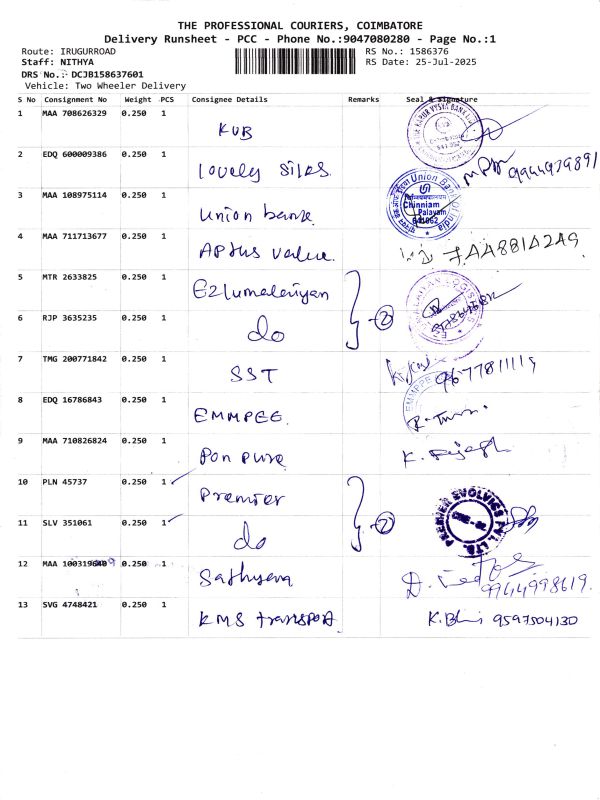 THE PROFESSIONAL COURIERS, COIMBATORE
Delivery Runsheet - PCC - Phone No.:9047080280 - Page No.:1
Route: IRUGURROAD RS No.: 1586376
Staff: NITHYA RS Date: 25-Jul-2025
DRS No.: DCJB158637601
Vehicle: Two Wheeler Delivery
S No Consignment No Weight PCS Consignee Details Remarks Seal & Signature
1 MAA 708626329 0.250 1 KVB
2 EDQ 600009386 0.250 1 Lovely Silks.
3 MAA 108975114 0.250 1 Union bank Union Bank of India Chinniam Palayam 641062
4 MAA 711713677 0.250 1 Aptus value.
5 MTR 2633825 0.250 1 2
6 RJP 3635235 0.250 1 do
7 TMG 200771842 0.250 1 SST 9677811115
8 EDQ 16786843 0.250 1 EMMPEE
9 MAA 710826824 0.250 1 Pon pure
10 PLN 45737 0.250 1 Premier 2
11 SLV 351061 0.250 1 do PREMIER EVOLVICS PVT. LTD.
12 MAA 0.250 1 Sathyera 9944998619.
13 SVG 4748421 0.250 1 KMS transport 9597504130